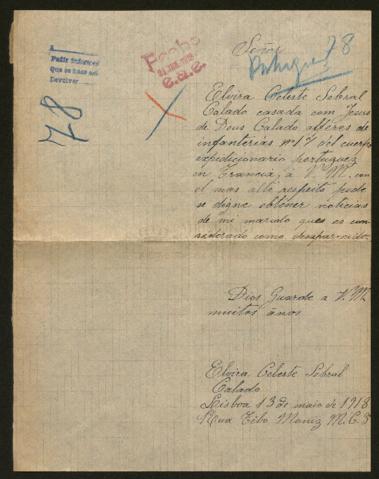 Señor
Pedir Informes
que se hace not
Devolver
Fecho
78
Portugues
78
Elvira Celeste Sobral
Calado casada com Jesus
de Deus Calado alferes de
infanterias nº 17 del cuerpo
expedicionario portuguez
en Francia, á V. M. con
el mas alto respeito pede
se digne obtener noticias
de mi marido que es con
siderado como desaparecido.
Dios Guarde a V. M.
muitos anos
Elvira Celeste Sobral
Calado
Lisboa 13 de maio de 1918
Rua